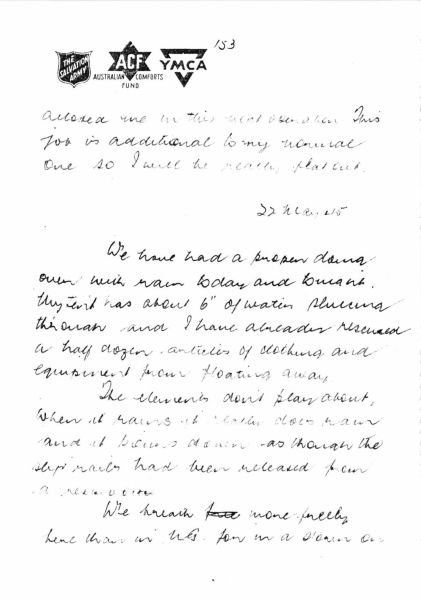 153
THE SALVATION ARMY
ACF
AUSTRALIAN COMFORTS FUND
YMCA
allowed me in this This
job is additional to my normal
one so I will be really flat out.
22 May 45
We have had a proper doing
over with rain today and tonight.
My tent has about 6" of water sluicing
through and I have already rescued
a half dozen articles of clothing and
equipment from floating away
The elements don't play about,
when it rains it really does rain
and it comes down as though the
slip rails had been released from
a reservoir
We breath more freely
here than in N.G. for in a